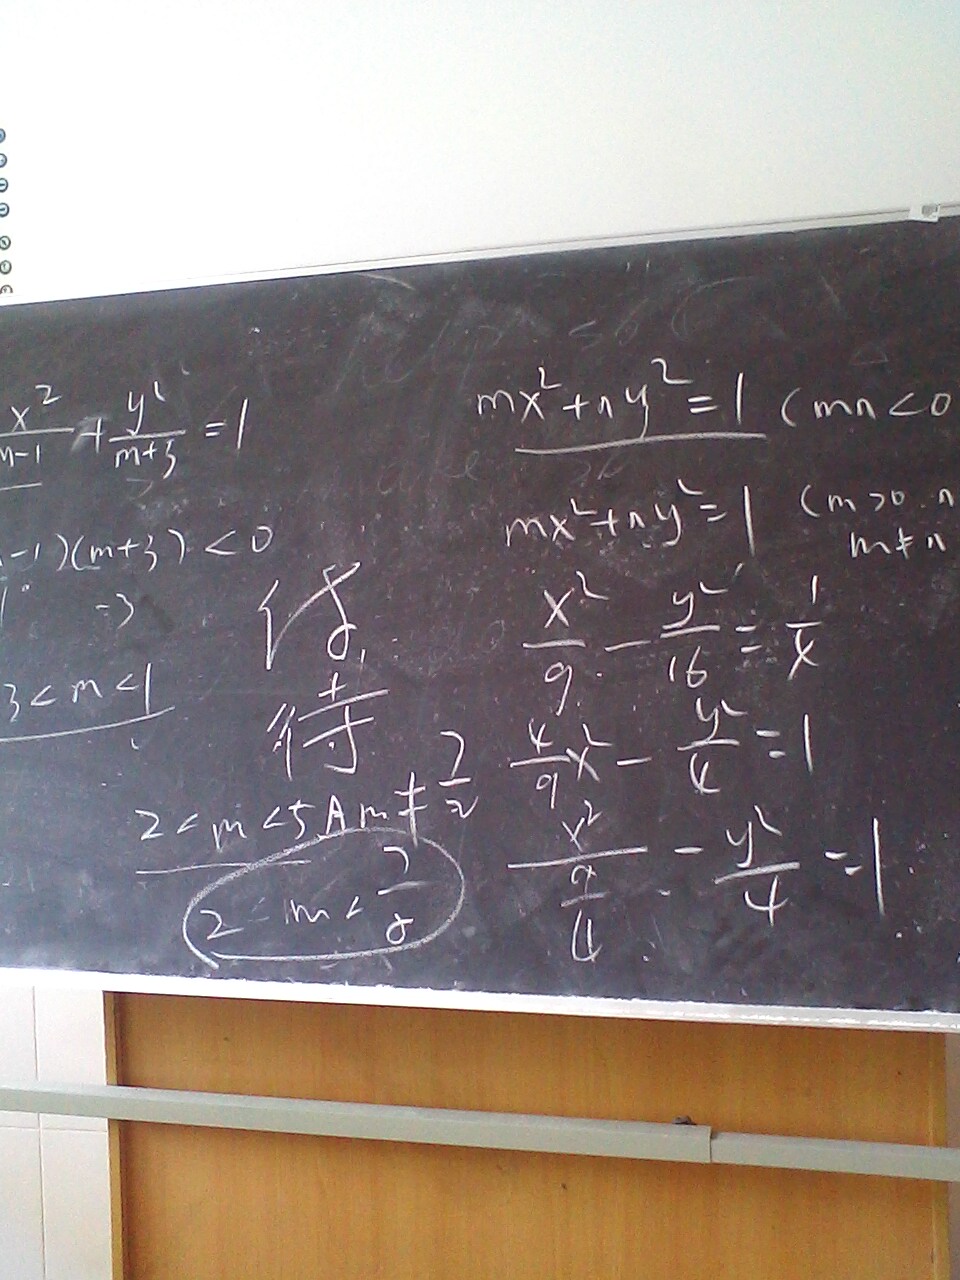 x²/m-1 + y²/m+3 = 1
-1)(m+3) < 0
-3
3 < m < 1
待
2 < m < 5 ∧ m ≠ 7/2
2 < m < 7/2
mx² + ny² = 1 (mn < 0
mx² + ny² = 1 (m > 0. n
m ≠ n
x²/9 - y²/16 = 1/4
4/9 x² - y²/4 = 1
x²/(9/4) - y²/4 = 1